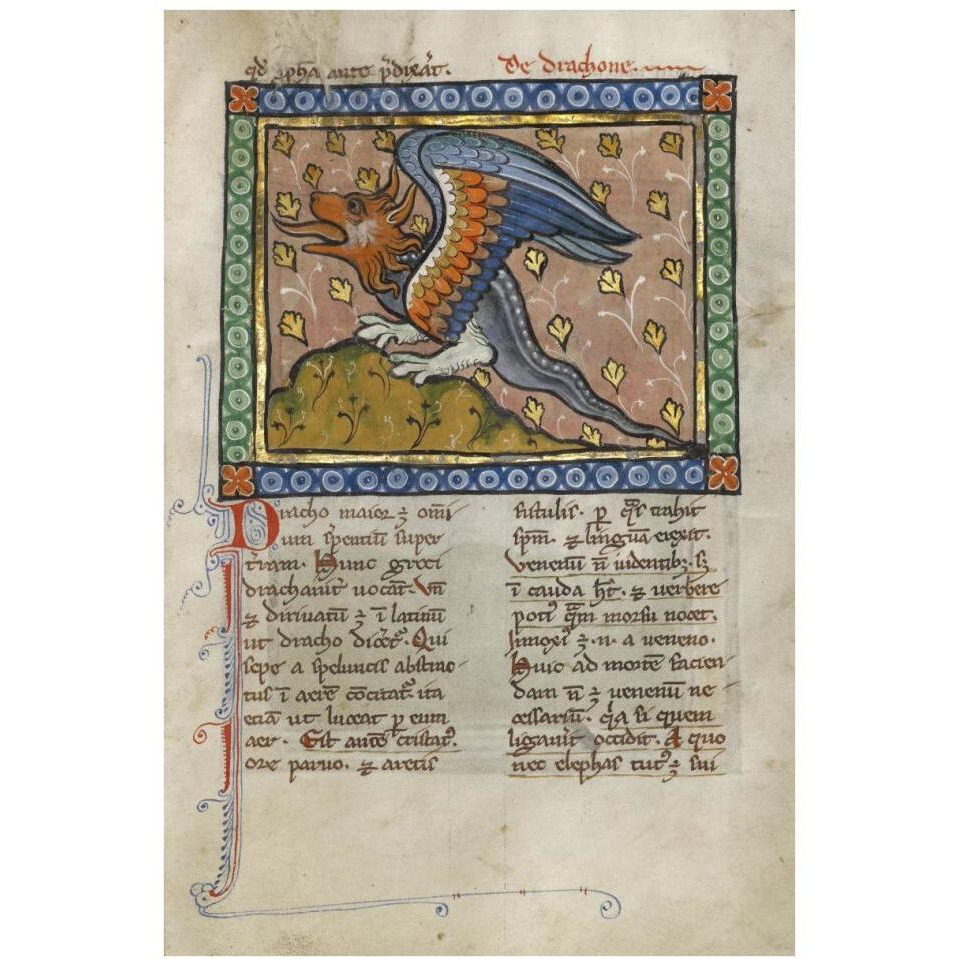 qđ ꝓph̄a ante p̄dixat̄.
De drachone.
Dracho maior ē om̄i
um sp̄entiū super
t̄ram. Hunc greci
drachanū uocāt. Vn̄
⁊ diriuatū ē ī latinū
ut dracho dic̄et̄. Qui
sepe a speluncis abstrac
tus ī aere cōcitat̄ ita
etiam ut luceat ꝑ eum
aer. Est autē cristatꝰ.
ore paruo. ⁊ artis
fistulis. ꝑ quas trahit
sp̄m. ⁊ linguā exerit.
Venenū n̄ in dentibꝫ. sꝫ
ī cauda h̄t. ⁊ uerbere
potiꝰ qm̄ morsu nocet.
Innoxiꝰ ē. n. a ueneno.
Huic ad mortē facien
dam n̄ ē uenenū ne
cessariū. qꝛa si quem
ligauīt occidit. A quo
nec elephas tutꝰ ē sui